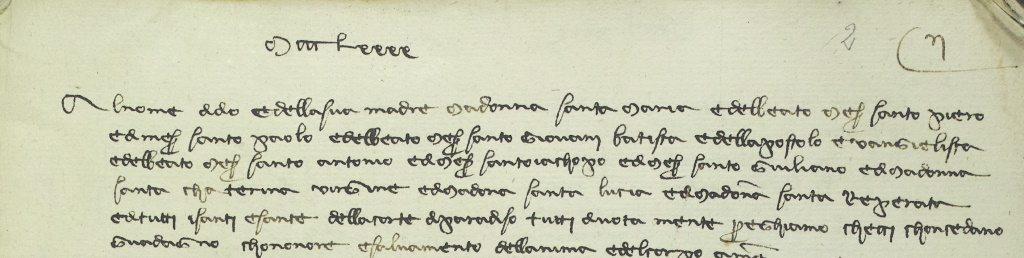 Mccclxxxx
2 (n
Al nome didio edellasua madre madonna santa maria edelbeato mes santo piero
edimes santo paolo edelbeato mes santo Giovanni batista edellapostolo evangielista
edelbeato mes santo antonio edimes santo iachopo edimes santo Giuliano edimadonna
santa chaterina virgine edimadona santa lucia edimadona santa Reperata
editutti isanti esante dellacorte diparadiso tutti divota mente preghiamo checci choncedano
Guadagno chononore esalvamento dellanima edelcorpo amen